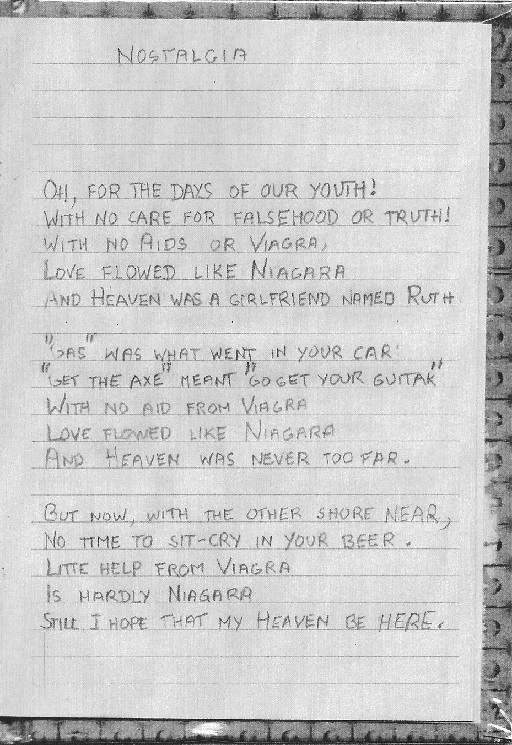 NOSTALGIA
OH, FOR THE DAYS OF OUR YOUTH!
WITH NO CARE FOR FALSEHOOD OR TRUTH!
WITH NO AIDS OR VIAGRA,
LOVE FLOWED LIKE NIAGARA
AND HEAVEN WAS A GIRLFRIEND NAMED RUTH
"GAS" WAS WHAT WENT IN YOUR CAR
"GET THE AXE" MEANT "GO GET YOUR GUITAR"
WITH NO AID FROM VIAGRA
LOVE FLOWED LIKE NIAGARA
AND HEAVEN WAS NEVER TOO FAR.
BUT NOW, WITH THE OTHER SHORE NEAR,
NO TIME TO SIT-CRY IN YOUR BEER.
LITTE HELP FROM VIAGRA
IS HARDLY NIAGARA
STILL I HOPE THAT MY HEAVEN BE HERE.